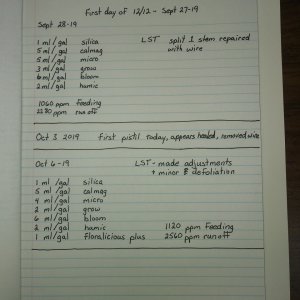 First day of 12/12 - Sept 27-19
Sept 28-19
1 ml/gal silica LST split 1 stem repaired
5 ml/gal calmag with wire
5 ml/gal micro
3 ml/gal grow
6 ml/gal bloom
2 ml/gal humic
1060 ppm feeding
2280 ppm run off
Oct 3 2019 First pistil today, appears healed, removed wire
Oct 6-19 LST - made adjustments
+ minor defoliation
1 ml/gal silica
5 ml/gal calmag
4 ml/gal micro
2 ml/gal grow
6 ml/gal bloom
2 ml/gal humic 1120 ppm feeding
1 ml/gal floralicious plus 2560 ppm runoff